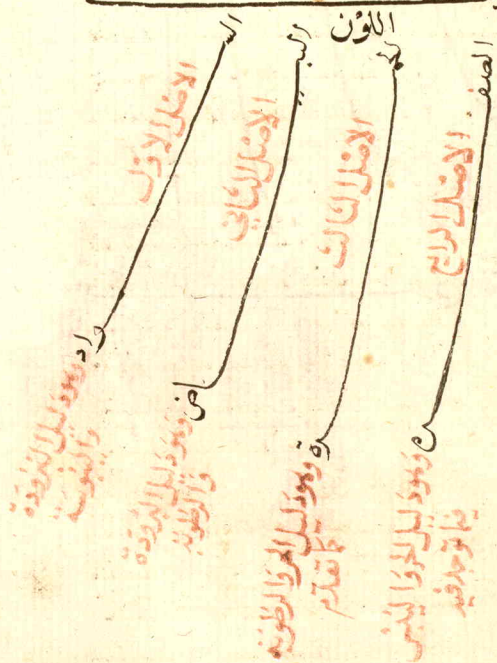 اللون
الصفرة
الاصل الرابع
وهو دليل الحر واليبس
الحمرة
الاصل الثالث
وهو دليل الحر والرطوبة
كما تقدم
البياض
الاصل الثاني
وهو دليل البرودة
والرطوبة
السواد
الاصل الاول
وهو دليل البرودة
واليبوسة